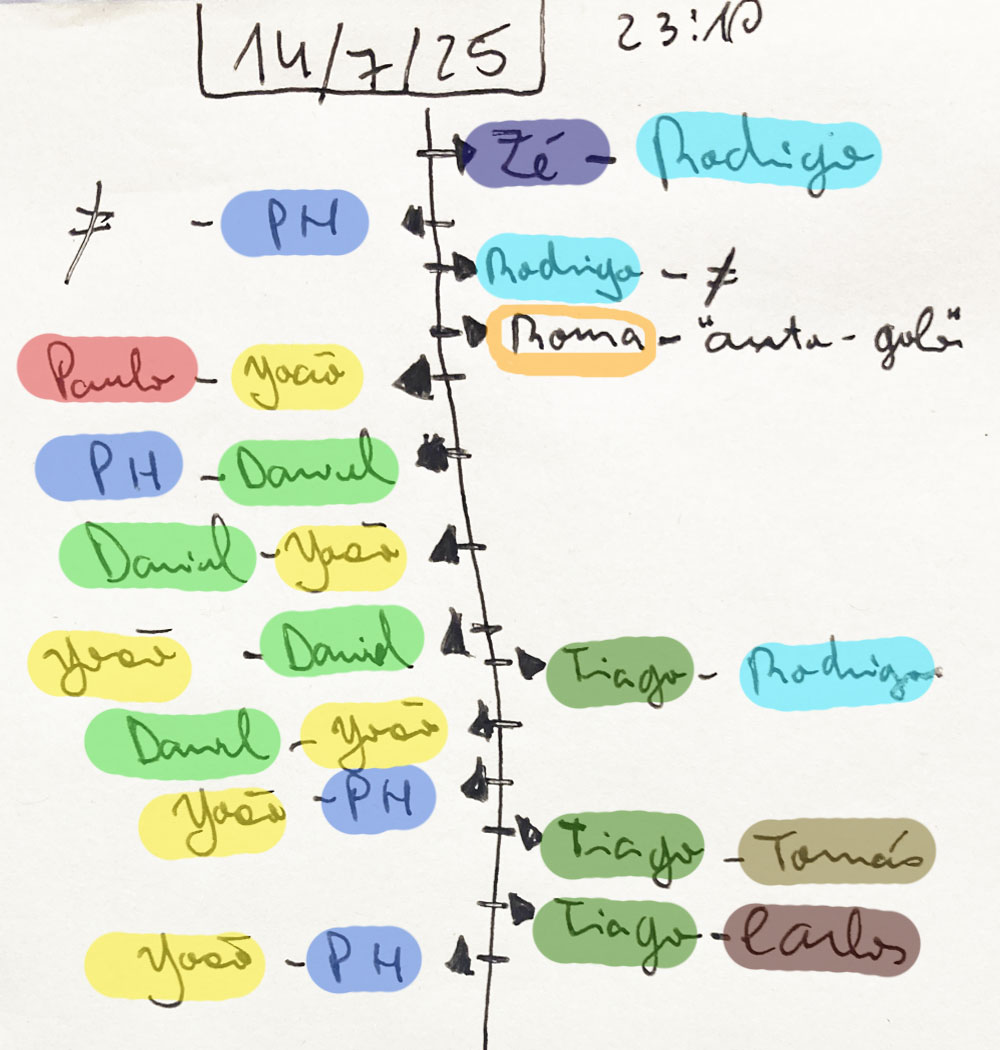 14/7/25 23:10
Zé - Rodrigo
≠ - PH
Rodrigo - ≠
Roma - "auto-golo"
Paulo - João
PH - Daniel
Daniel - João
João - Daniel
Tiago - Rodrigo
Daniel - João
João - PH
Tiago - Tomás
Tiago - Carlos
João - PH